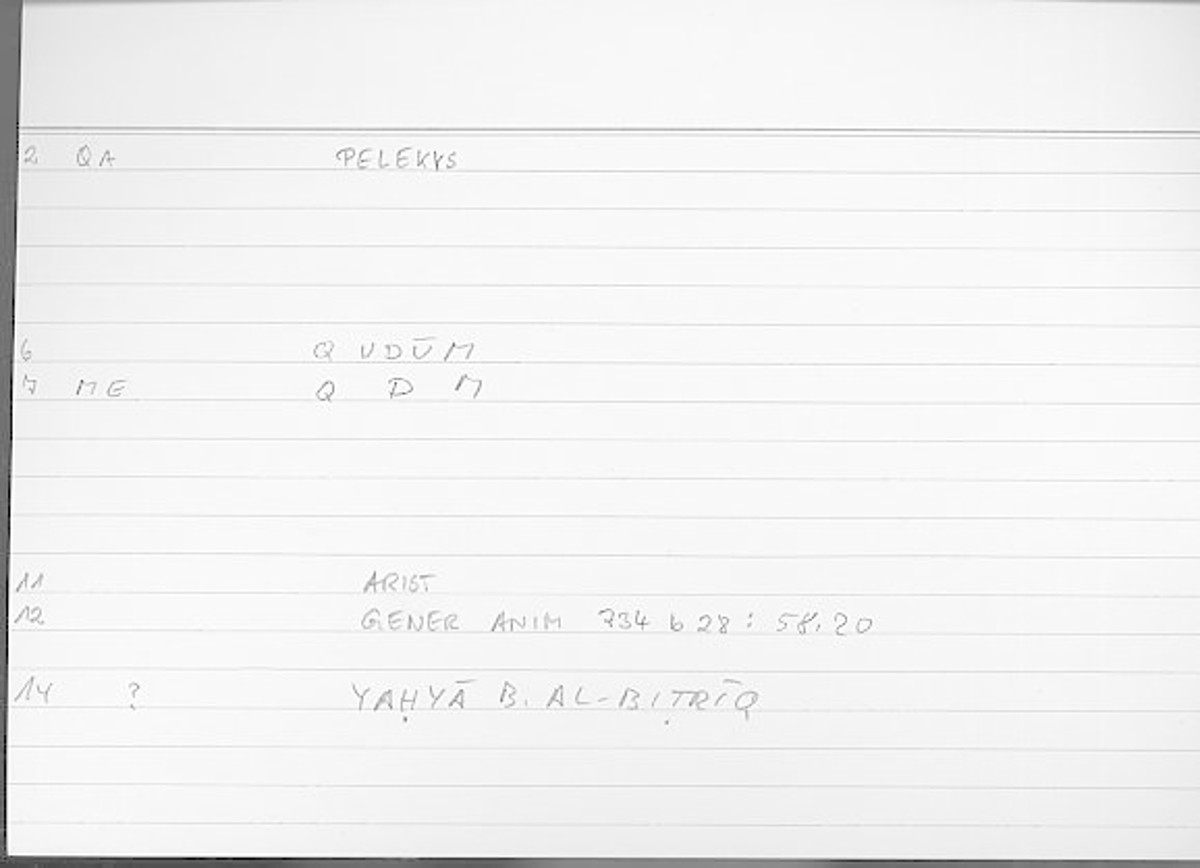 2 QA PELEKYS
6 Q UDŪM
7 ME Q D M
11 ARIST
12 GENER ANIM 734 b 28 : 58.20
14 ? YAḤYĀ B. AL-BIṬRĪQ